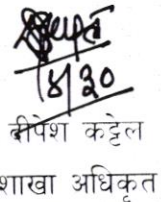 ४/३०
दीपेश कट्टेल
शाखा अधिकृत